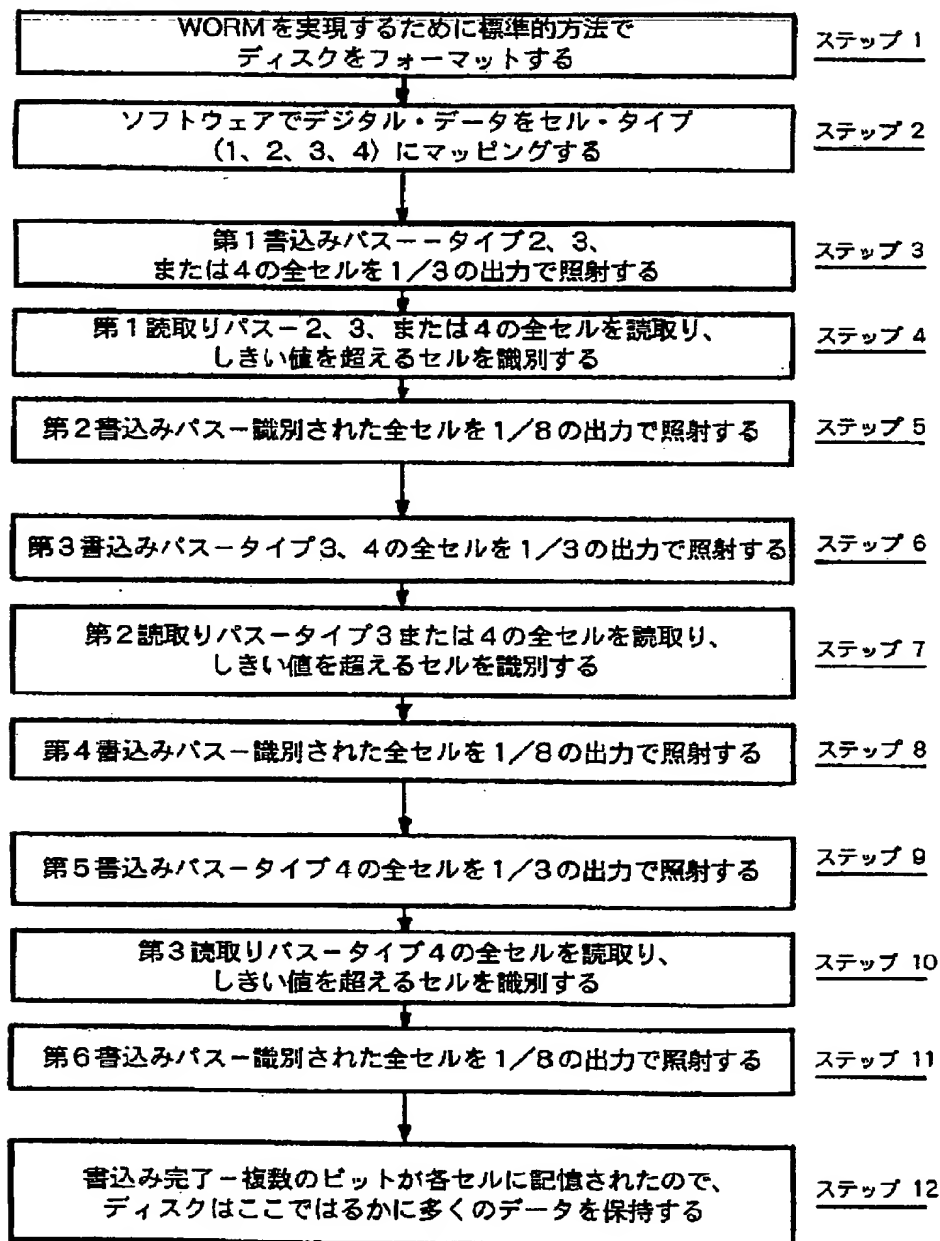 WORMを実現するために標準的方法で
ディスクをフォーマットする
ステップ 1
ソフトウェアでデジタル・データをセル・タイプ
(1、2、3、4)にマッピングする
ステップ 2
第1書込みパスーータイプ2、3、
または4の全セルを1/3の出力で照射する
ステップ 3
第1読取りパスー2、3、または4の全セルを読取り、
しきい値を超えるセルを識別する
ステップ 4
第2書込みパスー識別された全セルを1/8の出力で照射する
ステップ 5
第3書込みパスータイプ3、4の全セルを1/3の出力で照射する
ステップ 6
第2読取りパスータイプ3または4の全セルを読取り、
しきい値を超えるセルを識別する
ステップ 7
第4書込みパスー識別された全セルを1/8の出力で照射する
ステップ 8
第5書込みパスータイプ4の全セルを1/3の出力で照射する
ステップ 9
第3読取りパスータイプ4の全セルを読取り、
しきい値を超えるセルを識別する
ステップ 10
第6書込みパスー識別された全セルを1/8の出力で照射する
ステップ 11
書込み完了-複数のビットが各セルに記憶されたので、
ディスクはここではるかに多くのデータを保持する
ステップ 12